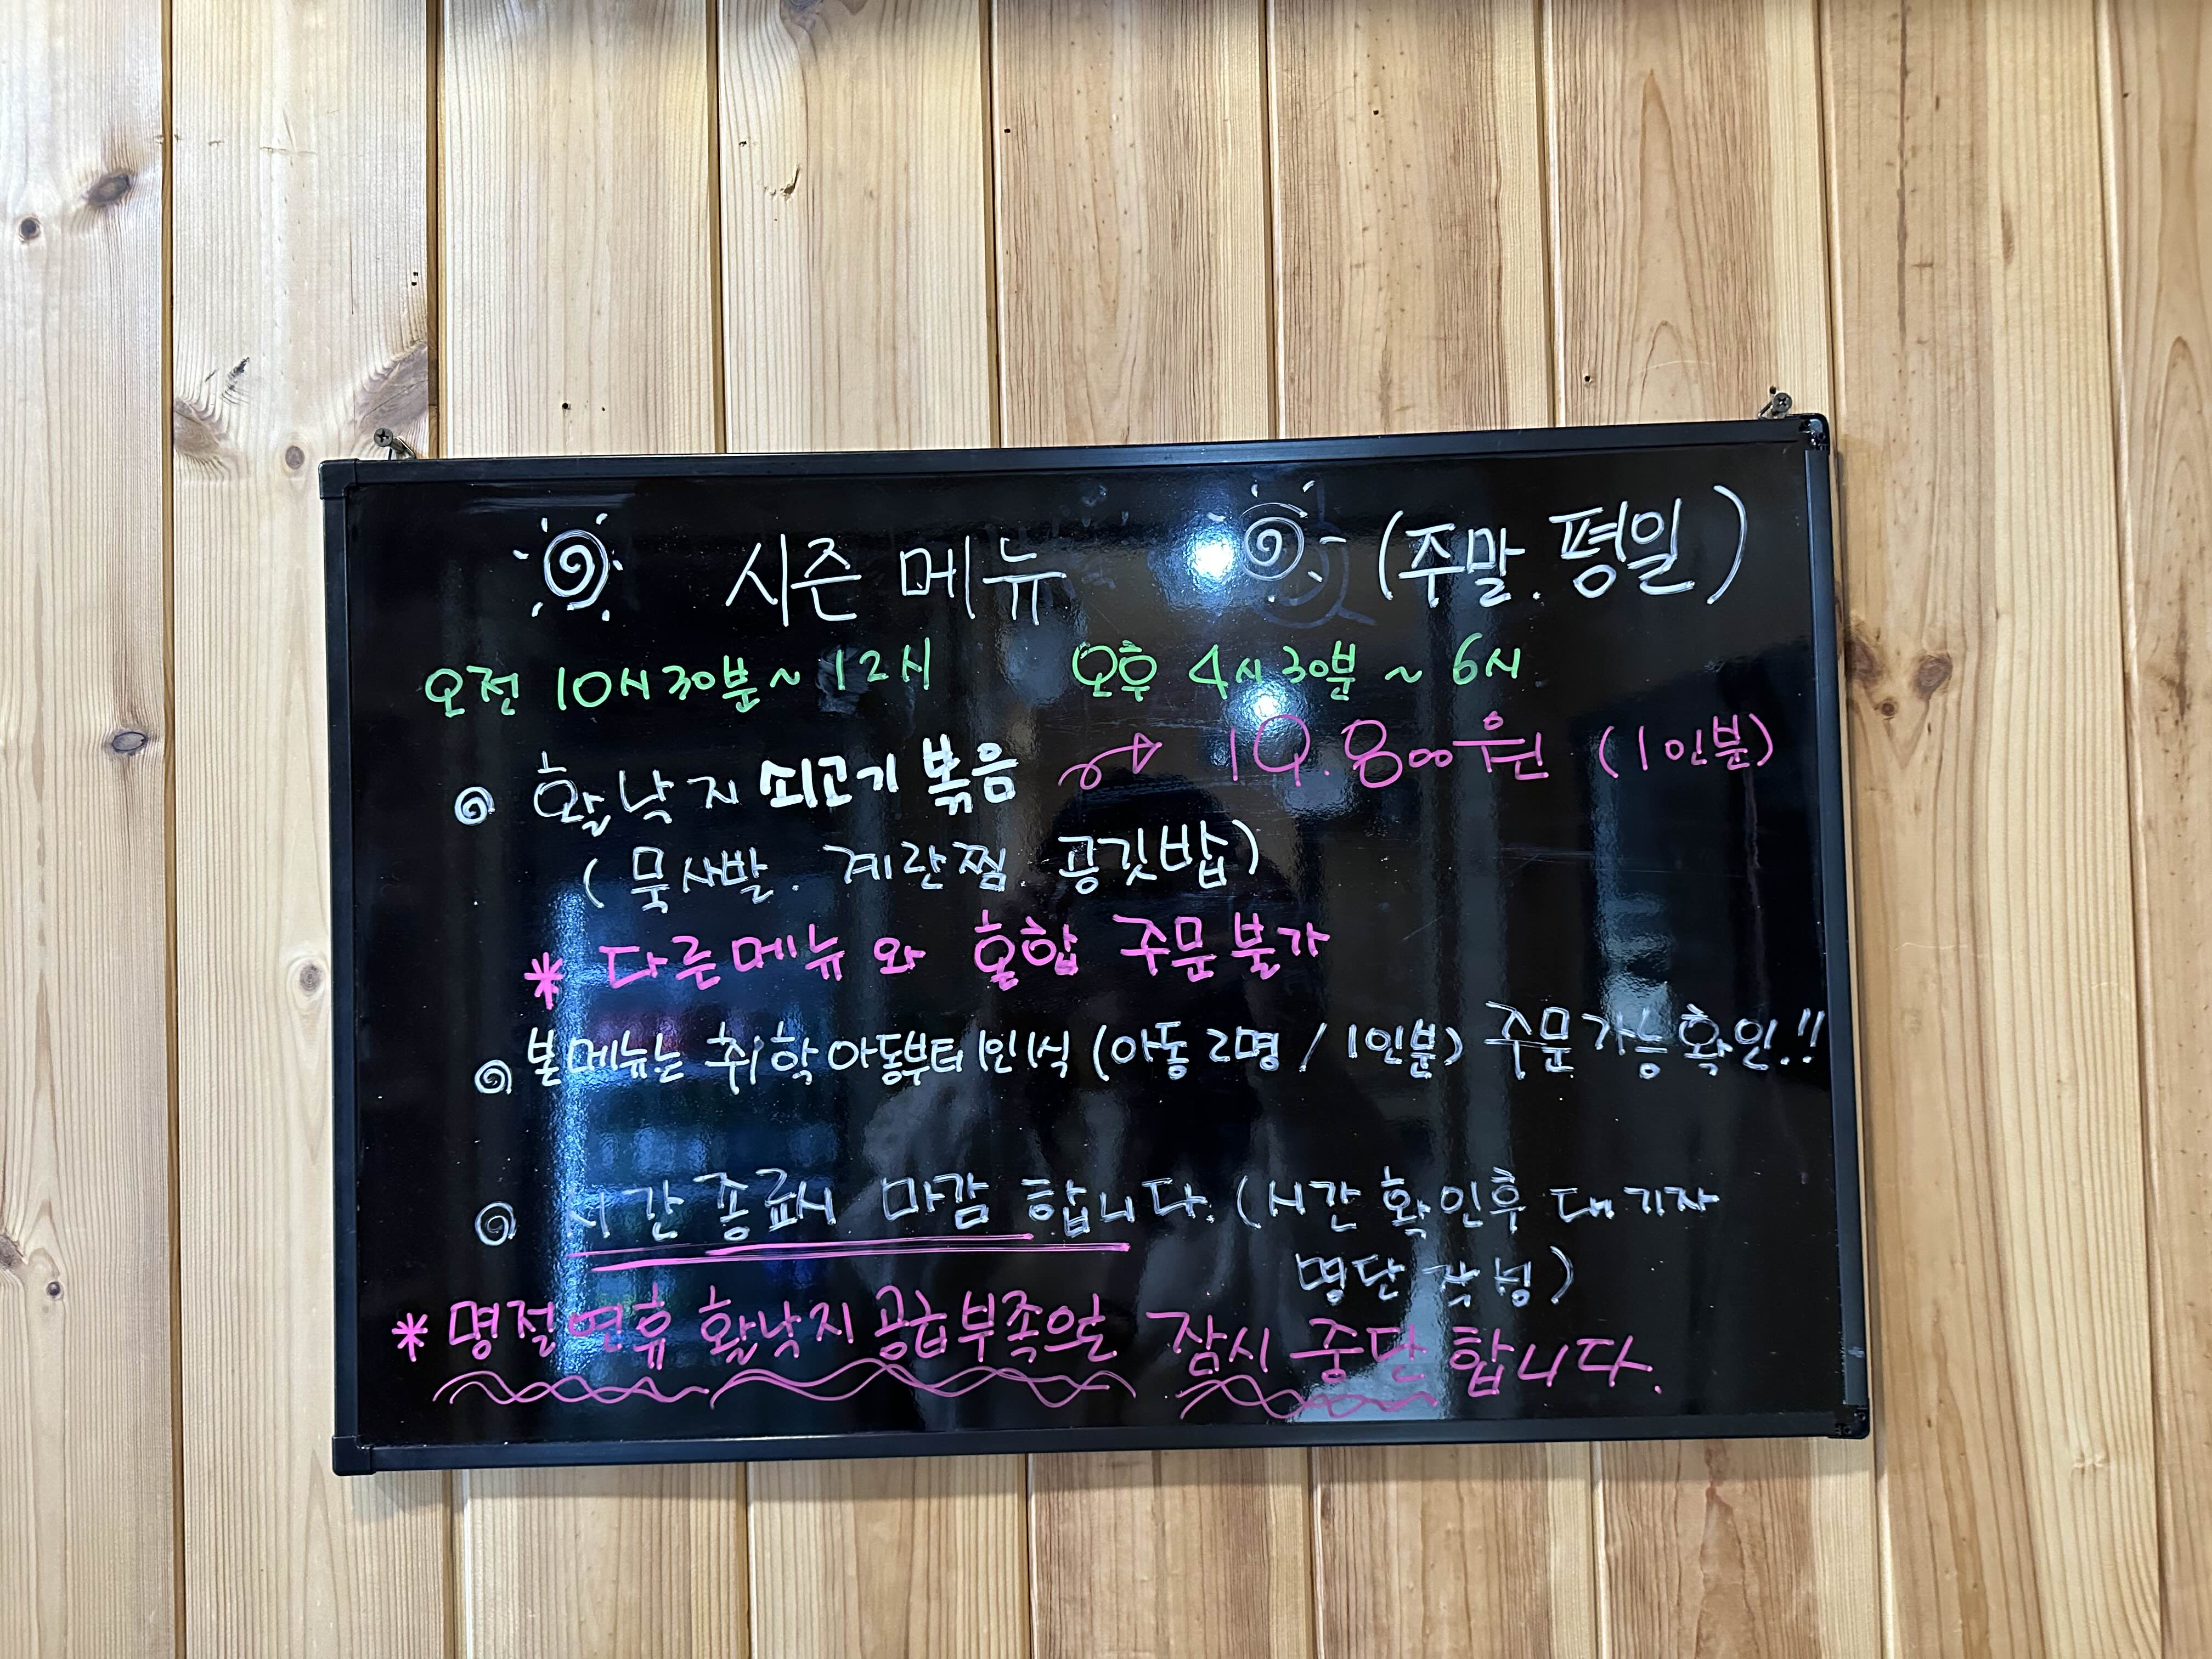 시즌 메뉴 (주말.평일)
오전 10시30분~12시 오후 4시30분~6시
활낙지 쇠고기 볶음 → 10.800원 (1인분)
(묵사발. 계란찜. 공깃밥)
* 다른메뉴와 혼합 주문불가
본메뉴는 취학아동부터 1인1식 (아동2명/1인분) 주문가능확인.!!
시간종료시 마감 합니다. (시간 확인후 대기자
명단 작성)
* 명절연휴 활낙지 공급부족으로 잠시 중단 합니다.